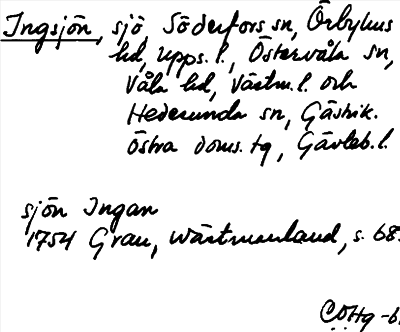 Ingsjön, sjö, Söderfors sn, Örbyhus
hd, Upps. l., Östervåla sn,
Våla hd, Västm. l. och
Hedesunda sn, Gästrik.
östra doms. tg, Gävleb. l.
sjön Ingan
1754 Grau, Wästmanland, s. 68.
COHg -6